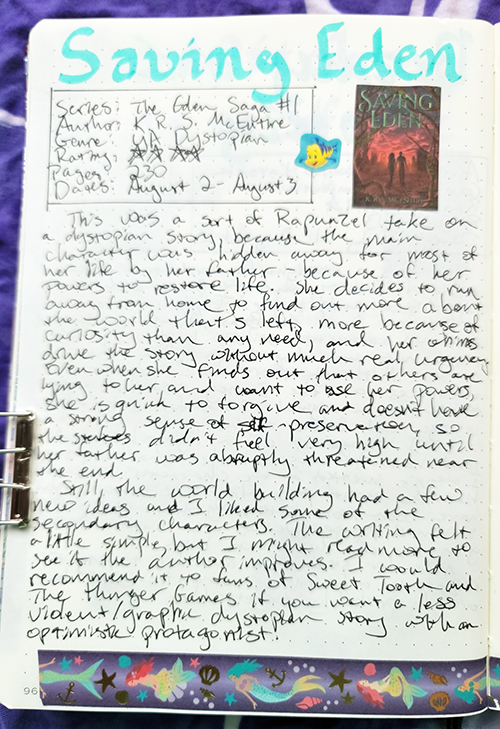 Saving Eden
Series: The Eden Saga #1
Author: K. R. S. McEntire
Genre: YA Dystopian
Rating: ★★ ★★
Pages: 230
Dates: August 2 - August 3
SAVING
EDEN
This was a sort of Rapunzel take on
a dystopian story, because the main
character was hidden away for most of
her life by her father - because of her
powers to restore life. She decides to run
away from home to find out more about
the world that's left, more because of
curiosity than any need, and her whims
drive the story without much real urgency.
Even when she finds out that others are
lying to her and want to use her powers,
she is quick to forgive and doesn't have
a strong sense of self-preservation, so
the stakes didn't feel very high until
her father was abruptly threatened near
the end.
Still, the world building had a few
new ideas and I liked some of the
secondary characters. The writing felt
a little simple, but I might read more to
see if the author improves. I would
recommend it to fans of Sweet Tooth and
The Hunger Games if you want a less
violent/graphic dystopian story with an
optimistic protagonist.
96